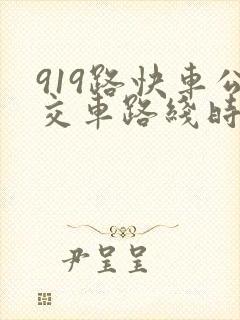 919路快車公
交車路綫時
尹呈呈